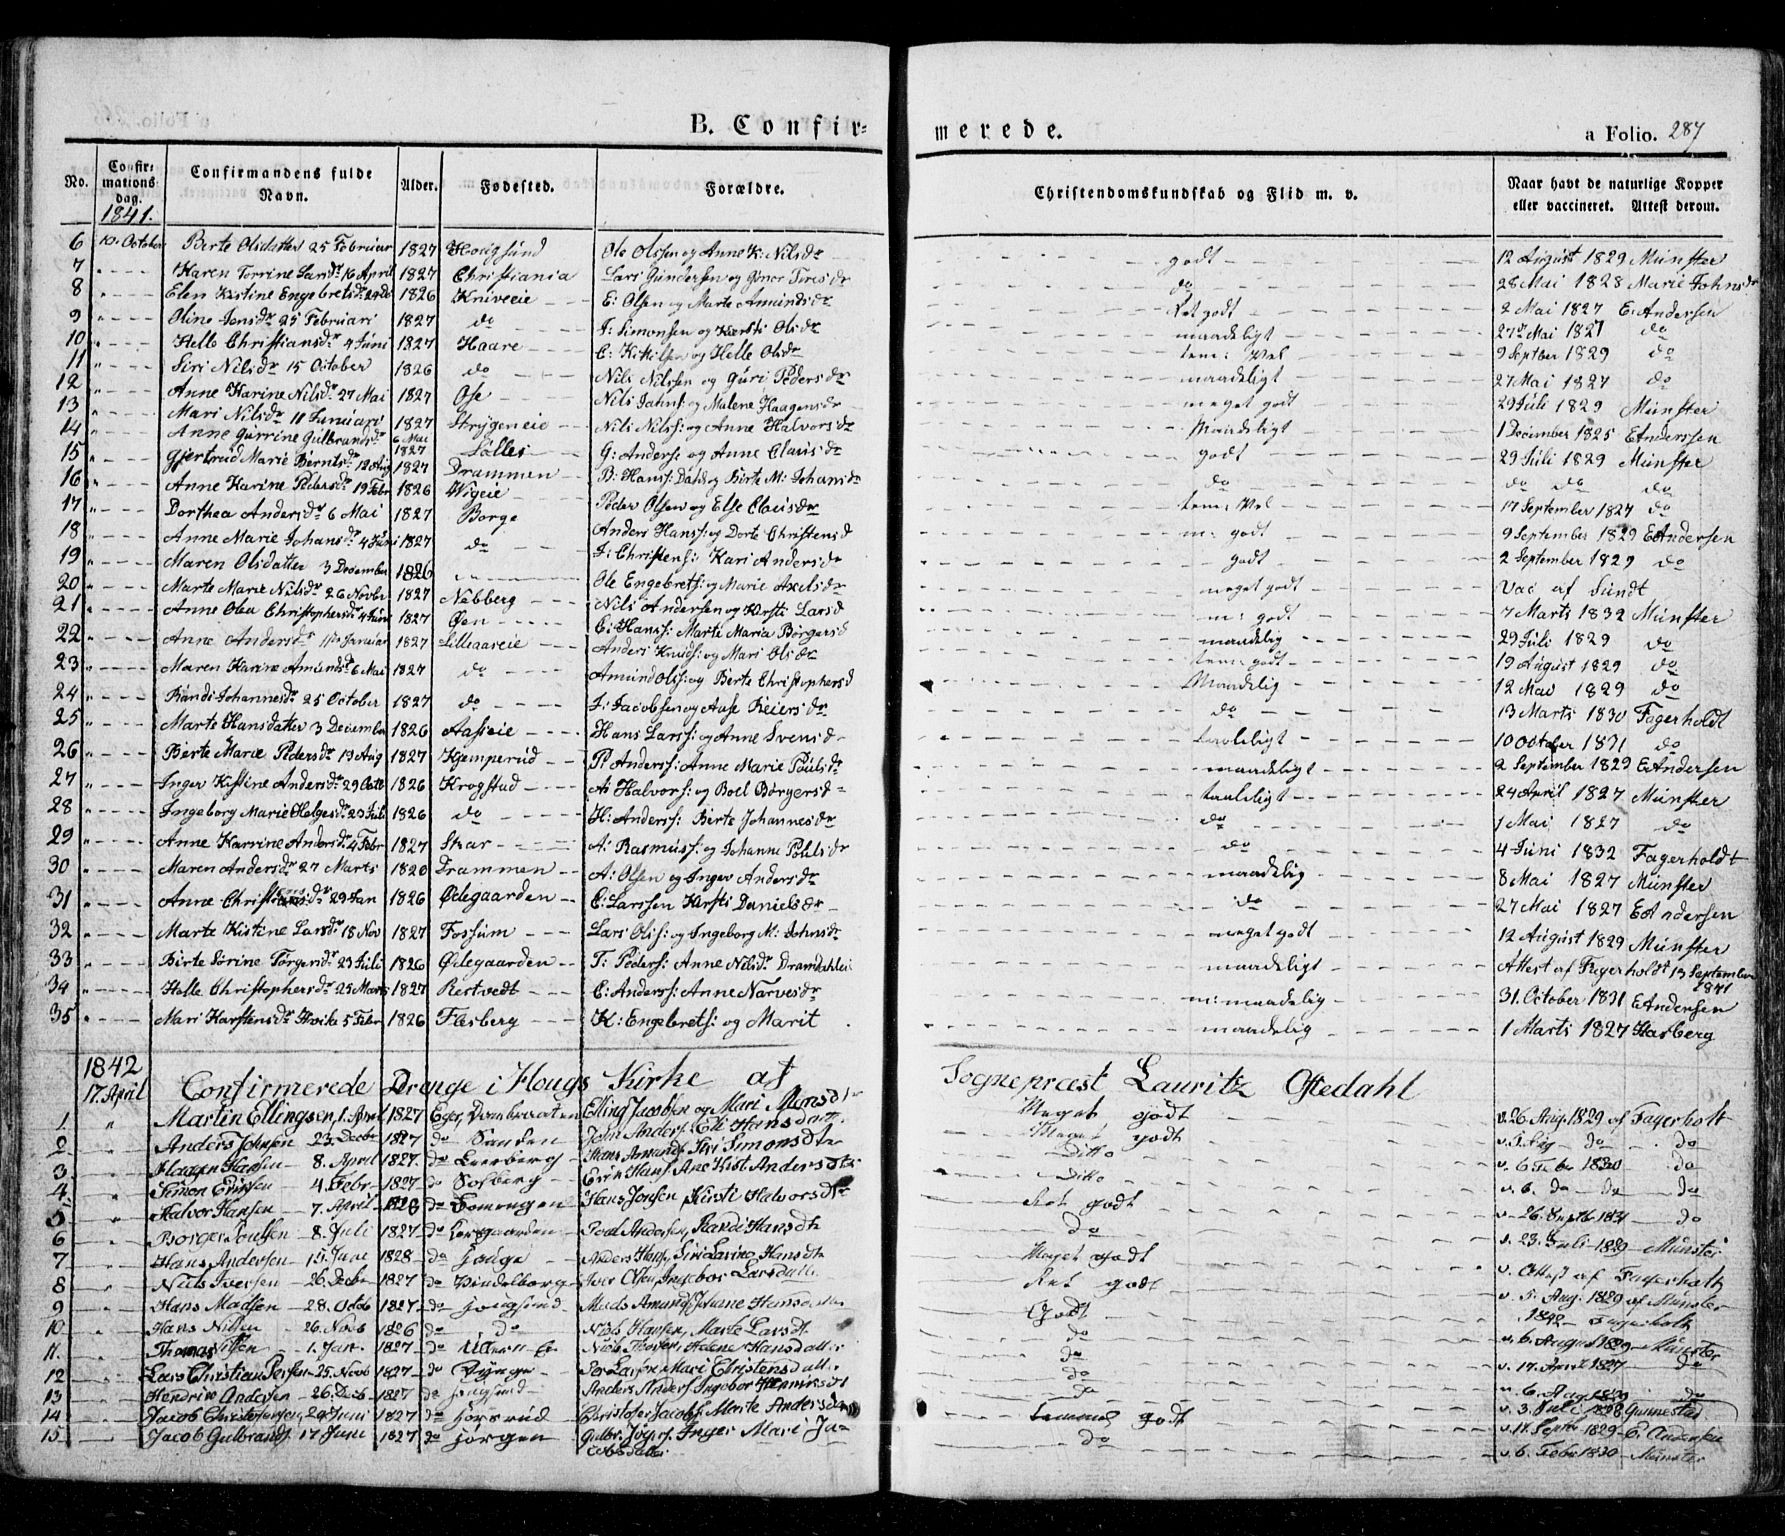 B. Confir-merede.
a Folio. 287
No.
Confir-mations dag.
Confirmandens fulde Navn.
Alder.
Fødested.
Forældre.
Christendomskundskab og Flid m. v.
Naar havt de naturlige Kopper eller vaccineret. Attest derom.
1841.
6 10. October Berte Olsdatter 25 Februar 1827 Hougsund Ole Olssen og Anne K: Nilsdr godt 12 August 1829 Münster
7 Karen Torrine Larsdr 16 April 1827 Christiania Lars Gundersen og do 28 Mai 1828 Marie Johnsdr
8 Elen Kistine Engebretsdr 1826 Kniveeie E: Olsen og Marte Amundsdr Ret godt 2 Mai 1827 E: Andersen
9 Oline Jensdr 25 Februari 1827 do J: Simonsen og Kersti Olsdr maadeligt 27 Mai 1827 do
10 Helle Christiansdr 4 Juni 1827 Haare C: Kittilsen og Helle Olsdr tem: Vel 9 Septber 1829 do
11 Siri Nilsdr 15 October 1826 do Nils Nilssen og Guri Pedersdr maadeligt 27 Mai 1827 do
12 Anne Karine Nilsdr 27 Mai 1827 Ose Nils Jahns: og Malene Haagensdr meget godt 29 Juli 1829 Münster
13 Mari Nilsdr 11 Januari 1827 Strygeneie Nils Nilss: og Anne Halvorsdr Maadeligt 1 December 1825 E Anderssen
14 Anne Gurrine Gulbrandsdr 6 Mai 1827 G: Anders og Anne Clausdr godt 29 Juli 1829 Münster
15 Gjertrud Marie Berntsdr 12 Aug 1827 Drammen B: Hanss: Dahl og Birte M: Johansdr do do do do
16 Anne Karine Pedersdr 19 Febr 1826 Wigeie Peder Olsen og Else Clausdr tem: Vel 17 September 1827 do
17 Dorthea Andersdr 6 Mai 1827 Borge Anders Hanss: og Dorte Christensd m: godt 9 September 1829 E Andersen
18 Anne Marie Johansdr 4 Juni 1827 do J: Christens: Kari Andersdr godt 2 September 1829 do
19 Maren Olsdatter 3 December 1826 Ole Engebrets: og Marie Axelsdr meget godt Vac af Sundt
20 Marte Marie Nilsdr 26 Novbr 1827 Nebberg Nils Andersen og Kirsti Larsd m: godt 7 Marts 1832 Münster
21 Anne Olea Christophersdr 4 Juni 1827 Øen C: Hanss: Marte Maria Børgersd maadelig 29 Juli 1829 do
22 Anne Andersdr Januar 1827 Lilleaaseie Anders Knuds: og Mari Olsdr tem: godt 19 August 1829 do
23 Maren Karine Amundsdr 6 Mai 1827 do Amund Olss: og Berte Christophersd Maadelig 12 Mai 1829 do
24 Randi Johannesdr 25 October 1827 do J: Jacobsen og Aase Reiersdr do 13 Marts 1830 Fagerholdt
25 Marte Hansdatter 3 December 1826 Aaseie Hans Larss: og Anne Svensd taaleligt 10 October 1831 do
26 Berte Marie Pedersdr 19 Aug 1827 Kjemperud P: Anderss: Anne Marie Poulsdr maadeligt 2 September 1829 E Andersen
27 Inger Kistine Andersdr 29 Octb 1826 Krogstad A: Halvors: og Boel Børgersd taaleligt 24 April 1827 Münster
28 Ingeborg Marie Helgesdr 23 Juli 1826 do H: Anderss: Birte Johannesdr do 1 Mai 1827 do
29 Anne Karrine Andersdr 4 Febr 1827 Skar A: Rasmuss: og Johanne Poulsdr do 4 Juni 1832 Fagerholdt
30 Maren Andersdr 27 Marts 1820 Drammen A: Olsen og Inger Andersdr maadelig 8 Mai 1827 Münster
31 Anne Christensdr 29 Jan 1826 Ødegaarden C: Larssen Kirsti Danielsdr do 27 Mai 1827 E Andersen
32 Marte Kistine Larsdr 18 Nov 1827 Fossum Lars Olss: og Ingeborg M: Johnsdr meget godt 12 August 1829 Münster
33 Birte Sørine Torgersdr 23 Juli 1826 Ødegaarden T: Peders: Anne Nilsdr Dramdahlen maadeligt Attest af Fagerholdt 13 September 1841
34 Helle Christophersdr 25 Marts 1827 Restvedt C: Anderss: Anne Narvesdr m: maadelig 31. October 1831 E Andersen
35 Mari Karstensdr Hvika 5 Febr 1826 Flesberg K: Engebrets: og Marit maadelig 1 Marts 1827 Hasberg
1842
17. April Confirmerede Drenge i Hougs Kirke af Sognepræst Lauritz Oftedahl
1 Martin Ellingsen, 1. April 1827 Eger, Dombraaten Elling Jacobsen og Mari Monsdtr Meget godt v. 26 Aug. 1829 af Fagerholt
2 Anders Johnsen 23. Decbr 1827 do Sanden John Anders: Elli Hansdatt. Meget godt v. 5. Aug do do
3 Haagen Hansen 8. April 1827. do Leerberg Hans Amunds: Siri Simonsdtr Ditto v. 6 Febr 1830 do
4 Simon Eriksen 4. Febr 1827 do Solberg Erik Hans: Ane Kist. Andersdtr Ditto v. 6. do do do
5 Halvor Hansen 7. April 1828 do Hans Jonsen, Kirsti Halvorsdtr Ret godt v. 26 Septb 1831 do
6 Børger Poulsen 8. Juli 1827 do Poul Andersen, Randi Hansdtr do v. 23. Juli 1829 Münster
7 Hans Andersen 15. June 1828 do Houge Anders Hans: Siri Larine Hansdtr Meget godt v. Attest af Fagerholt
8 Niels Iversen 26. Decbr 1827 do Iver Olsen, Ingebor Larsdatt. Ret godt v. 5. Aug. 1829 af Münster
9 Hans Madsen 28. Octob 1827 do Hougsund Mads Amunds: Johane Hansdatter Godt 1842 Fagerholt
10 Hans Nilsen 26. Novb 1826 do do Niels Hansen, Marte Larsdt. do v. 6. August 1829 Münster
11. Thomas Nilsen 1. Jan. 1827 do Niels Thoresen, Helene Hansdatter do v. 17. April 1827 do
12 Lars Christian Persen 25. Novb 1827 do Per Larsen Mari Christensdatter do v. 6. Aug. 1829 do
13 Hendrik Andersen 26. Decb 1827 do Hougsund Anders Anders: Ingebor Henriksdt do v. 3. Juli 1828 Gunnestad
14 Jacob Christofersen 29 Juni 1827 do Horsrud Christofer Jacobs: Marte Andersdtr Temmel. godt v. 17. Septbr 1829 E. Andersen
15 Jacob Gulbrands. 17 Juni 1827 do Horgen Gulbr. Inger Mari Jacobsdatter do v. 6. Febr 1830 Münster